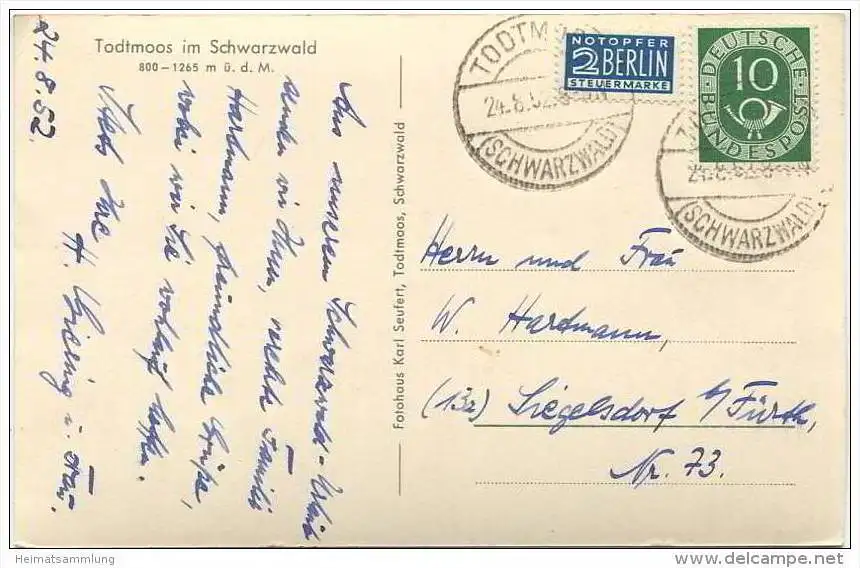 Todtmoos im Schwarzwald
800 – 1265 m ü. d. M.
24.8.52.
Aus unserem Schwarzwald-Urlaub
senden wir Ihnen, werte Familie
Hardmann, freundliche Grüße,
wobei wir Sie wohlauf hoffen.
Ihre
H. u. Frau.
Fotohaus Karl Seufert, Todtmoos, Schwarzwald
TODTM
24.8.52.
(SCHWARZWALD)
NOTOPFER
2 BERLIN
STEUERMARKE
DEUTSCHE
10
BUNDESPOST
24.8.52.8
(SCHWARZWALD)
Herrn und Frau
W. Hardmann,
(13a) Siegelsdorf b/Fürth,
Nr. 73.
Heimatsammlung
delcampe.net